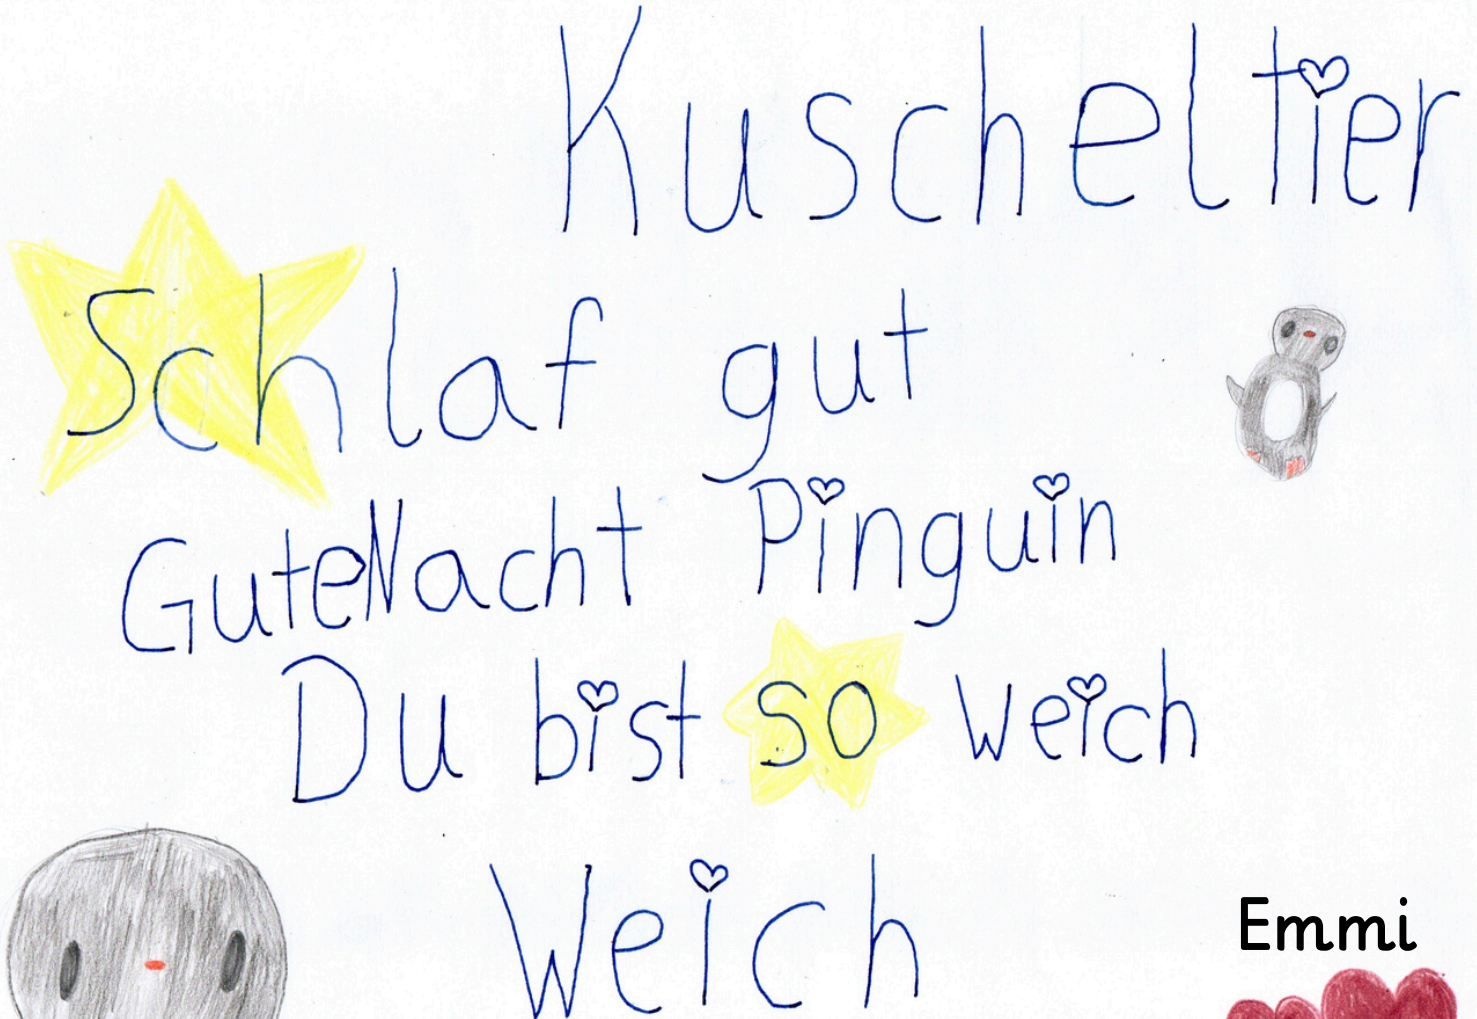 Kuscheltier
Schlaf gut
GuteNacht Pinguin
Du bist so weich
Weich
Emmi